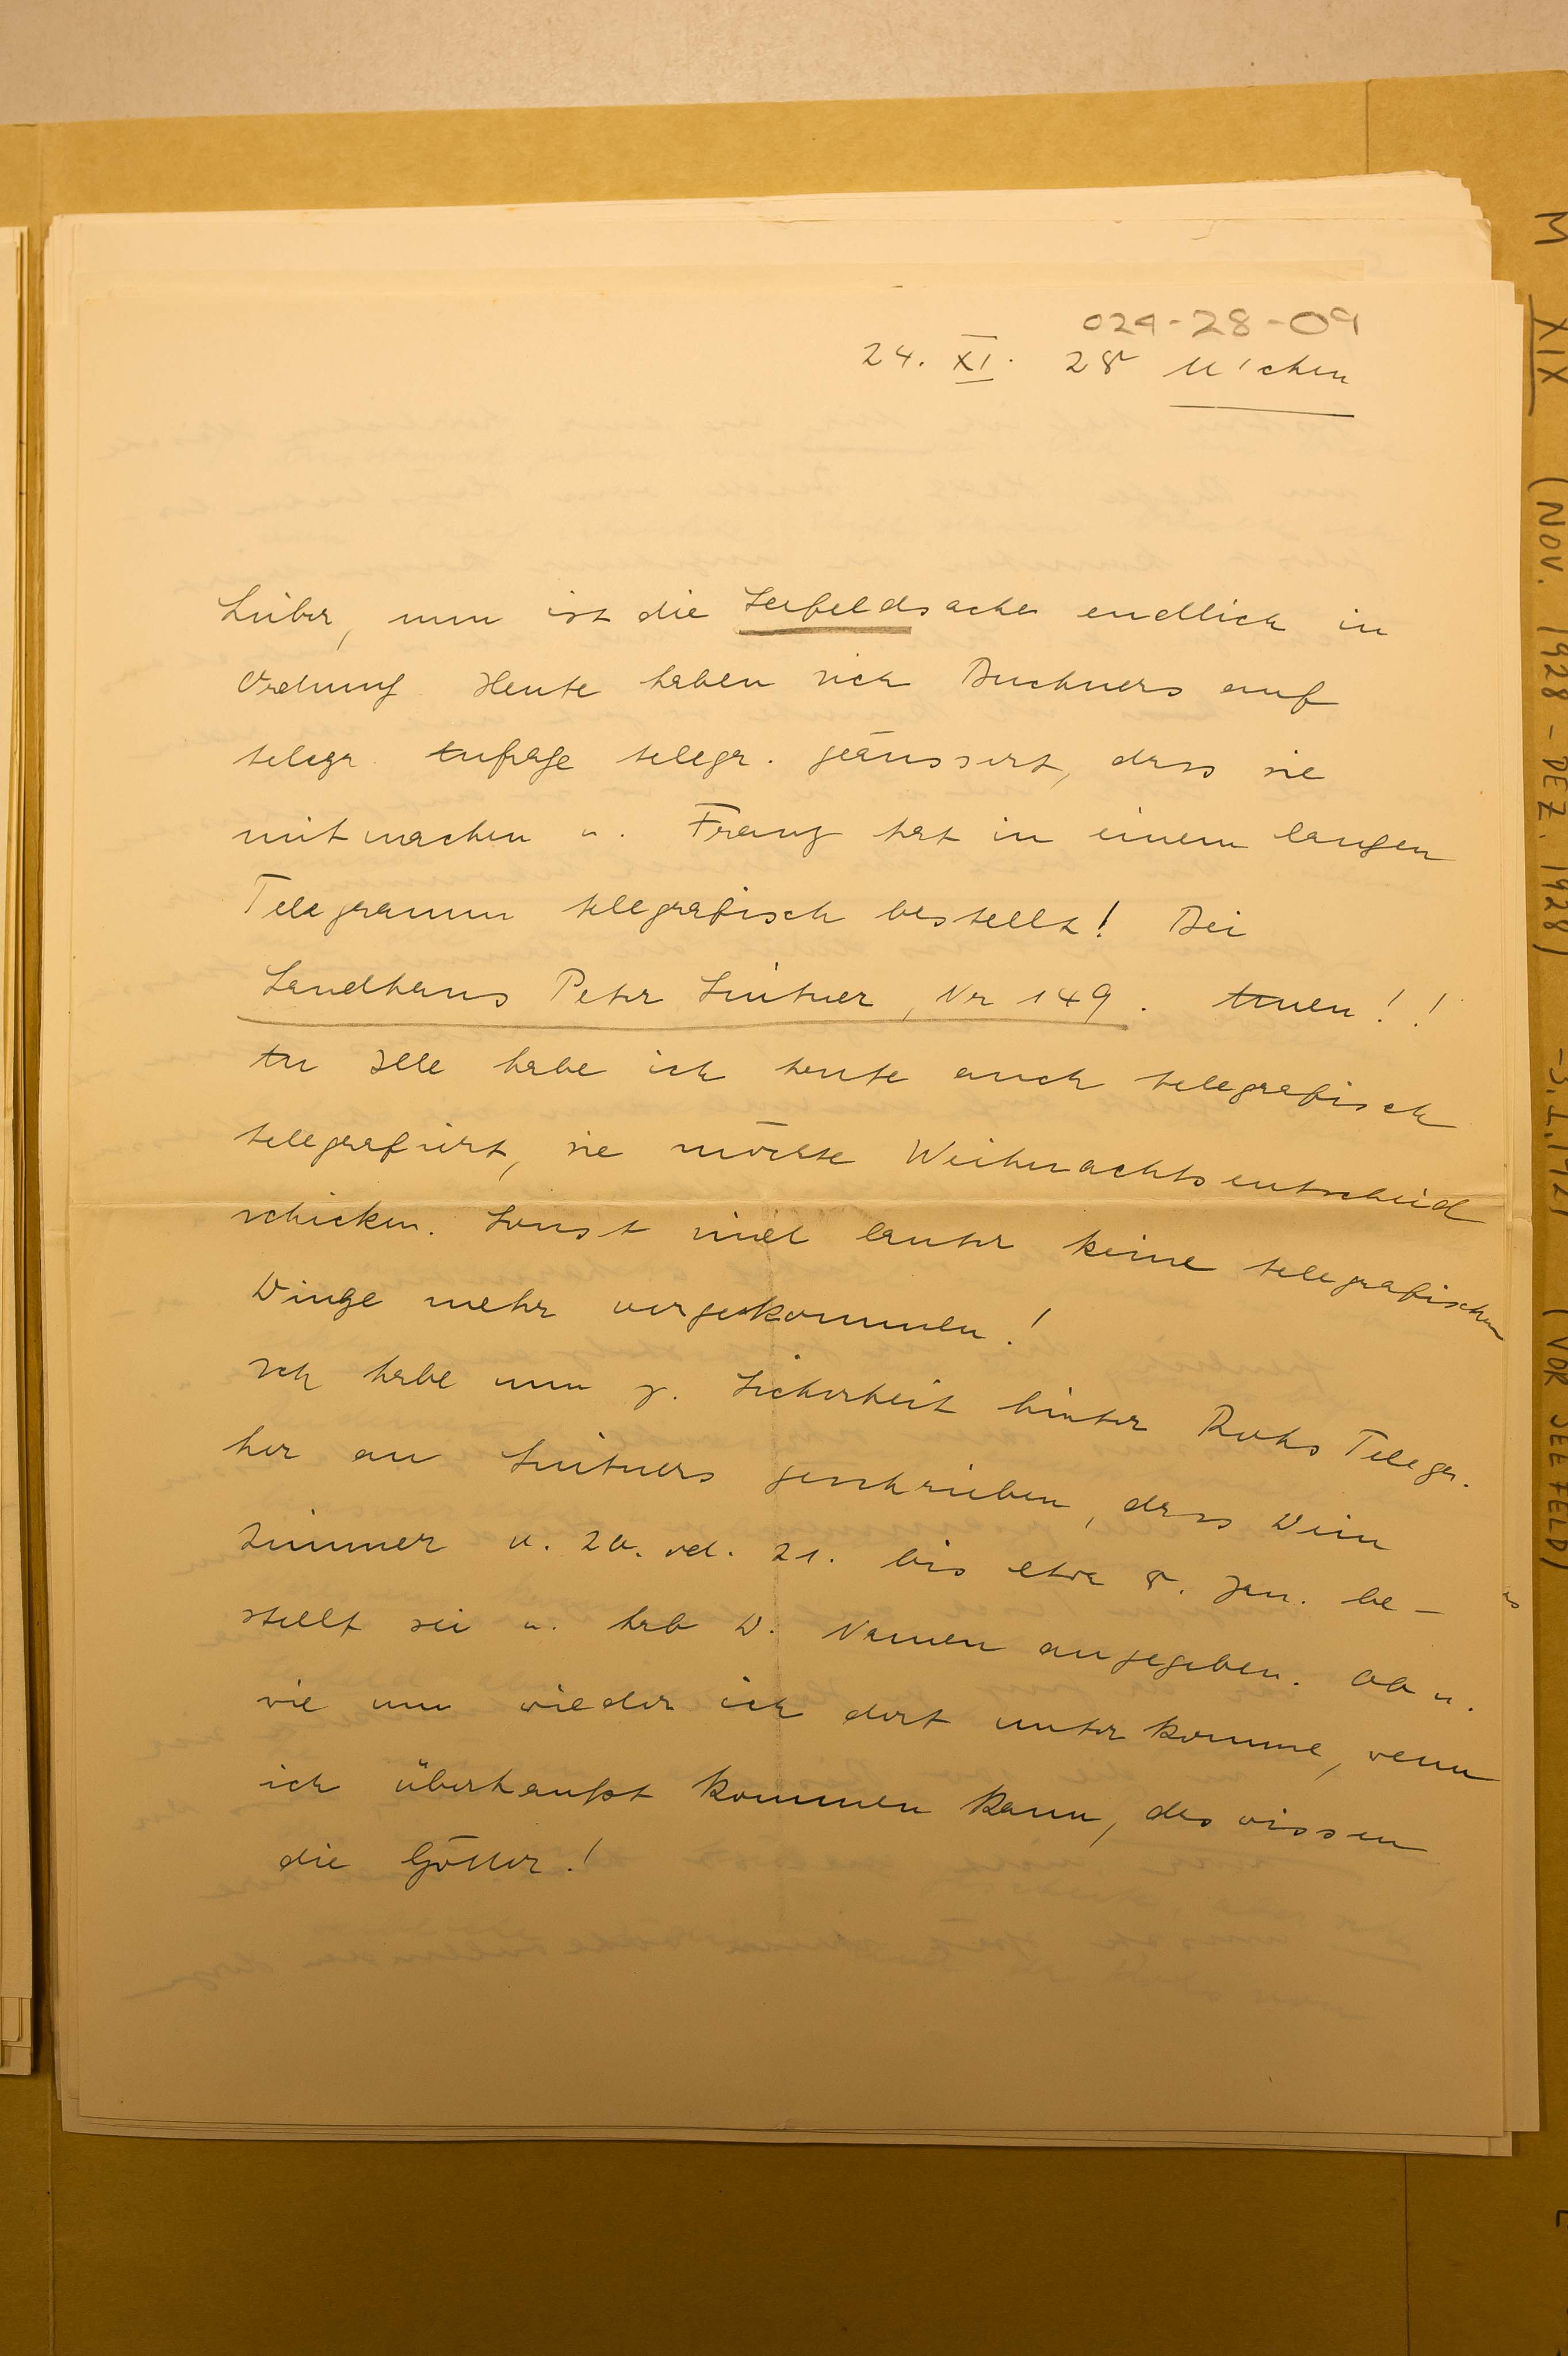 024-28-09
24. XI. 28 M'chen
Lieber, nun ist die Seefeldsache endlich in
Ordnung. Heute haben sich Buchners auf
telegr. Anfrage telegr. geäussert, dass sie
mitmachen u. Franz hat in einem langen
Telegramm telegrafisch bestellt! Bei
Landhaus Peter Leitner, Nr 149. Amen!!
An Ille habe ich heute auch telegrafisch
telegrafiert, sie möchte Weihnachtsentscheid
schicken. Sonst sind lauter keine telegrafischen
Dinge mehr vorgekommen!
Ich habe nun z. Sicherheit hinter Telegr.
her an Leitners geschrieben, dass Dein
Zimmer v. 20. od. 21. bis etwa 8. Jan. be-
stellt sei u. hab D. Namen angegeben. Ob u.
wie nun wieder ich dort unterkomme, wenn
ich überhaupt kommen kann, das wissen
die Götter!
M XIX (NOV. 1928 - DEZ. 1928) (VOR SEEFELD)